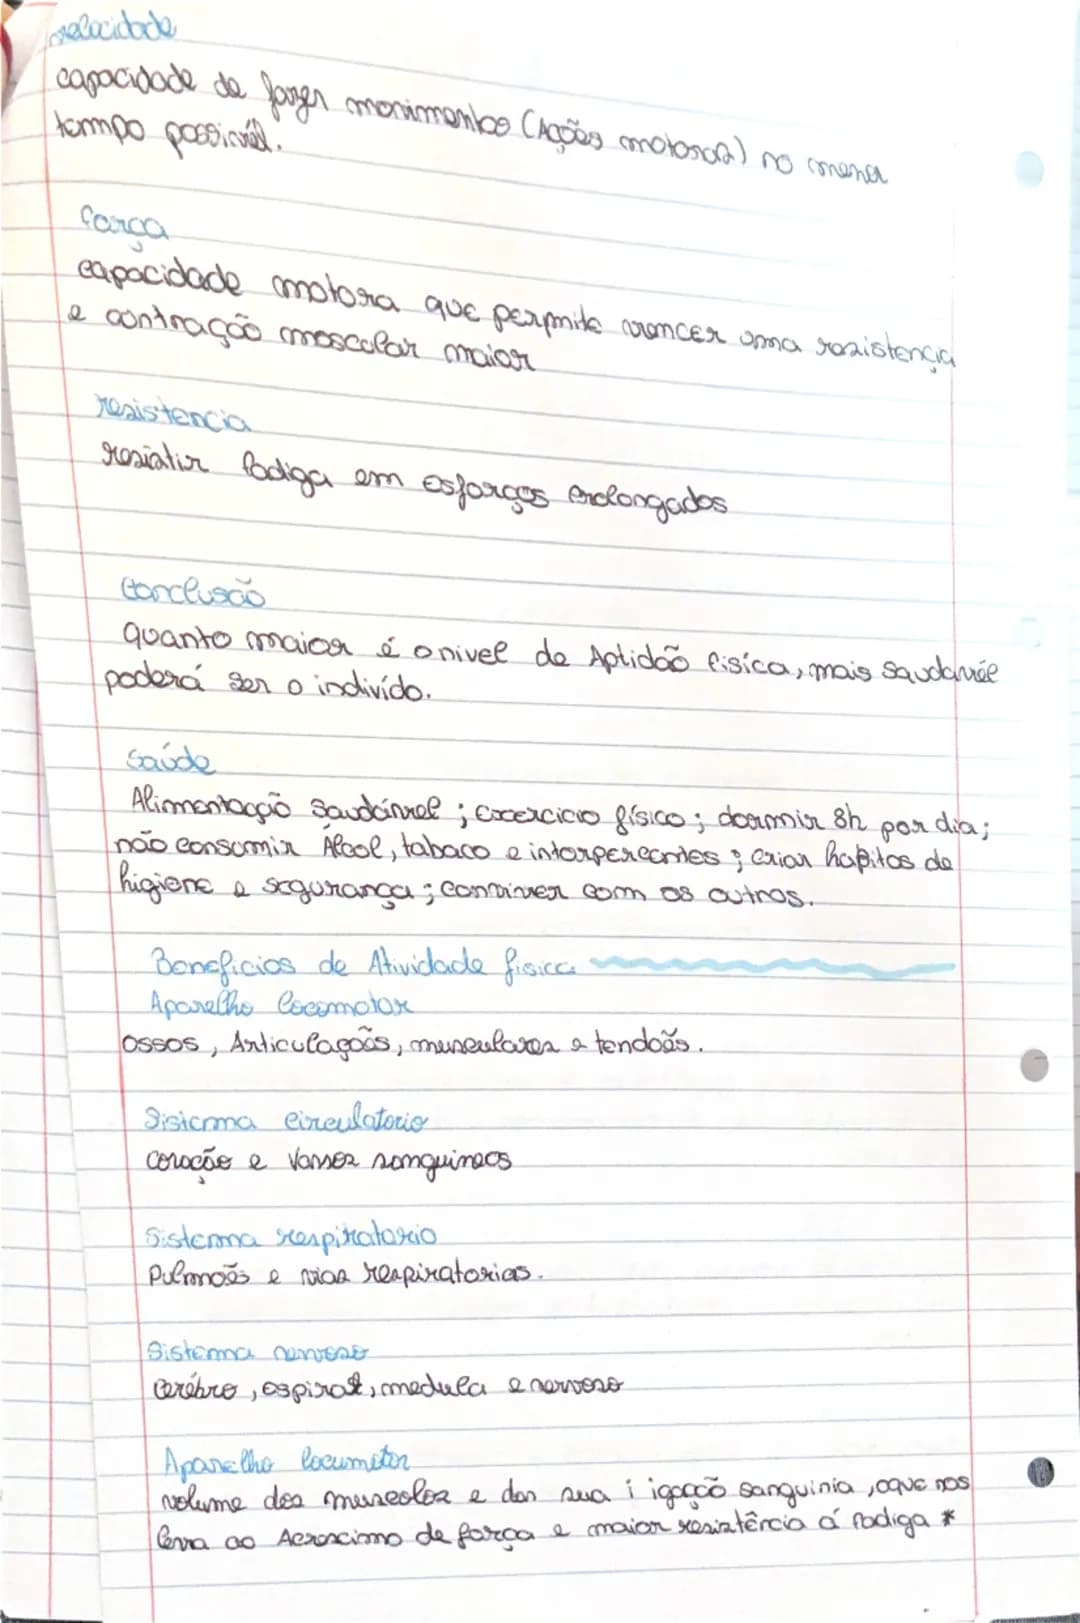 velocidade
capacidade de fazer movimentos (Ações motoras) no menor
tempo possivél.
força
capacidade motora que permite vencer uma resistencia
e contração moscular maior
resistencia
resistir fadiga em esforços prolongados
Conclusão
quanto maior é o nivel de Aptidão fisíca, mais saudavél
poderá ser o indivído.
Saúde
Alimentação Saudável ; Excercicio físico ; dormir 8h por dia;
não consumir Álcol, tabaco e intorpercentes ; criar habitos de
higiene e segurança ; conviver com os outros.
Beneficios de Atividade fisica
Aparelho locomotor
ossos, Articulações, musculares e tendões.
Sistema circulatorio
coração e vasos sanguineos
Sistema respiratorio
Pulmões e vias respiratorias.
Sistema nervoso
Cerébro, espiral, medula e nervoso
Aparelho locumotor
volume dos musculos e da sua i igação sanguinia, oque nos
leva ao Acrescimo de força e maior resistência á fadiga *